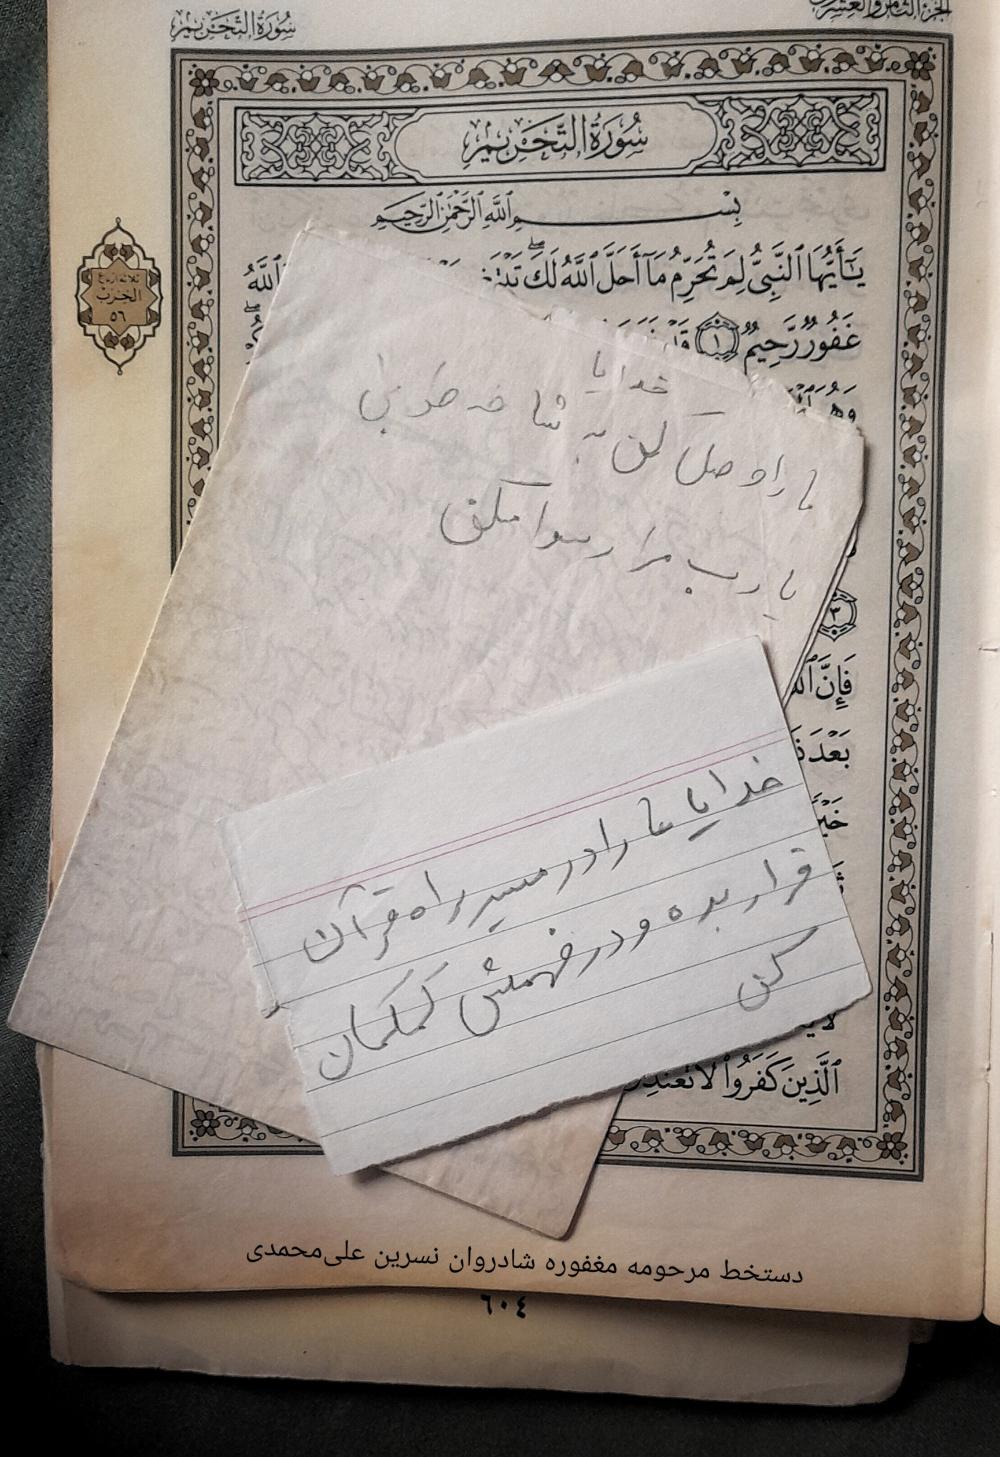 سُورَةُ التَّحْرِيمِ
الجزء الثامن والعشرون
سُورَةُ التَّحْرِيمِ
بِسْمِ اللَّهِ الرَّحْمَٰنِ الرَّحِيمِ
يَٰٓأَيُّهَا ٱلنَّبِىُّ لِمَ تُحَرِّمُ مَآ أَحَلَّ ٱللَّهُ لَكَ ۖ ٱللَّهُ
غَفُورٌ رَّحِيمٌ ١ قَدْ
وَهُوَ
ثلاثة أرباع
الحزب
٥٦
خدایا
ما را وصل کن به شاخه طوبی
یا رب مرا رسوا مکن
٣
فَإِنَّ
بَعْدَ
خدایا ما را در مسیر راه قرآن
قرار بده و در فهمش کمکمان
کن
ٱلَّذِينَ كَفَرُوا۟ لَا
دستخط مرحومه مغفوره شادروان نسرین علی‌محمدی
٦٠٤